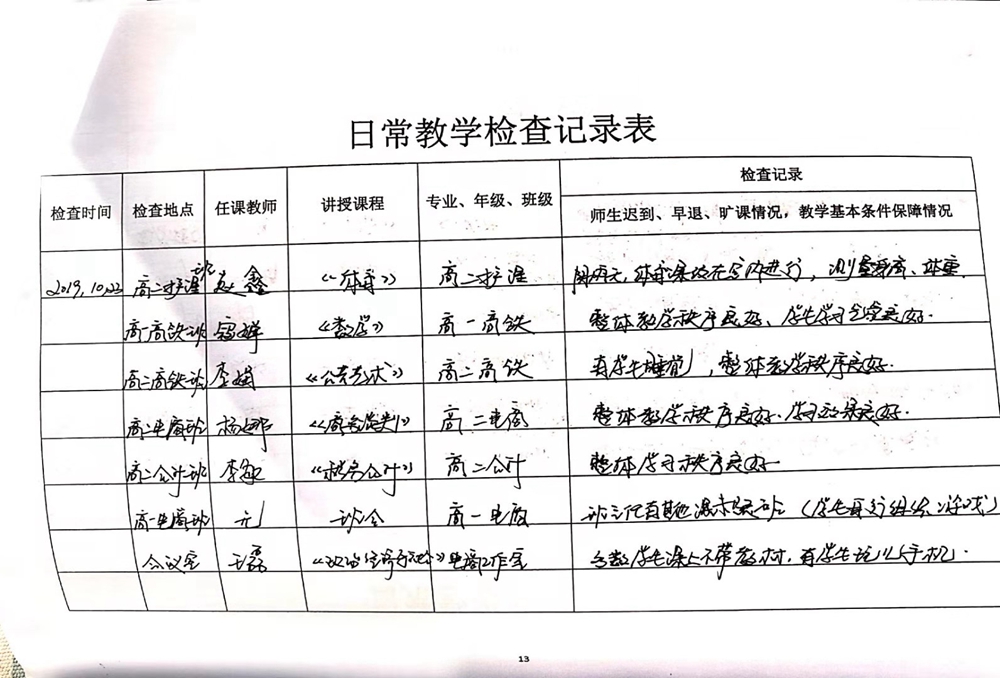 日常教学检查记录表
检查时间 检查地点 任课教师 讲授课程 专业、年级、班级 检查记录
师生迟到、早退、旷课情况，教学基本条件保障情况
2019.10.22 高二护理班 赵鑫 《体育》 高二护理 因雨天，体育课改在室内进行，测量身高、体重.
高一高铁班 《数学》 高一高铁 整体教学秩序良好、学生学习 良好.
高二高铁班 李娟 高二高铁 有学生睡觉，整体教学秩序良好.
高二电商班 杨娜 高二电商 整体教学秩序良好.学习效果良好.
高二会计班 李敏 《税务会计》 高二会计 整体学习秩序良好
高一电商班 无 班会 高一电商
会议室 王磊 电商工作室 多数学生课上不带教材，有学生玩儿手机.
13